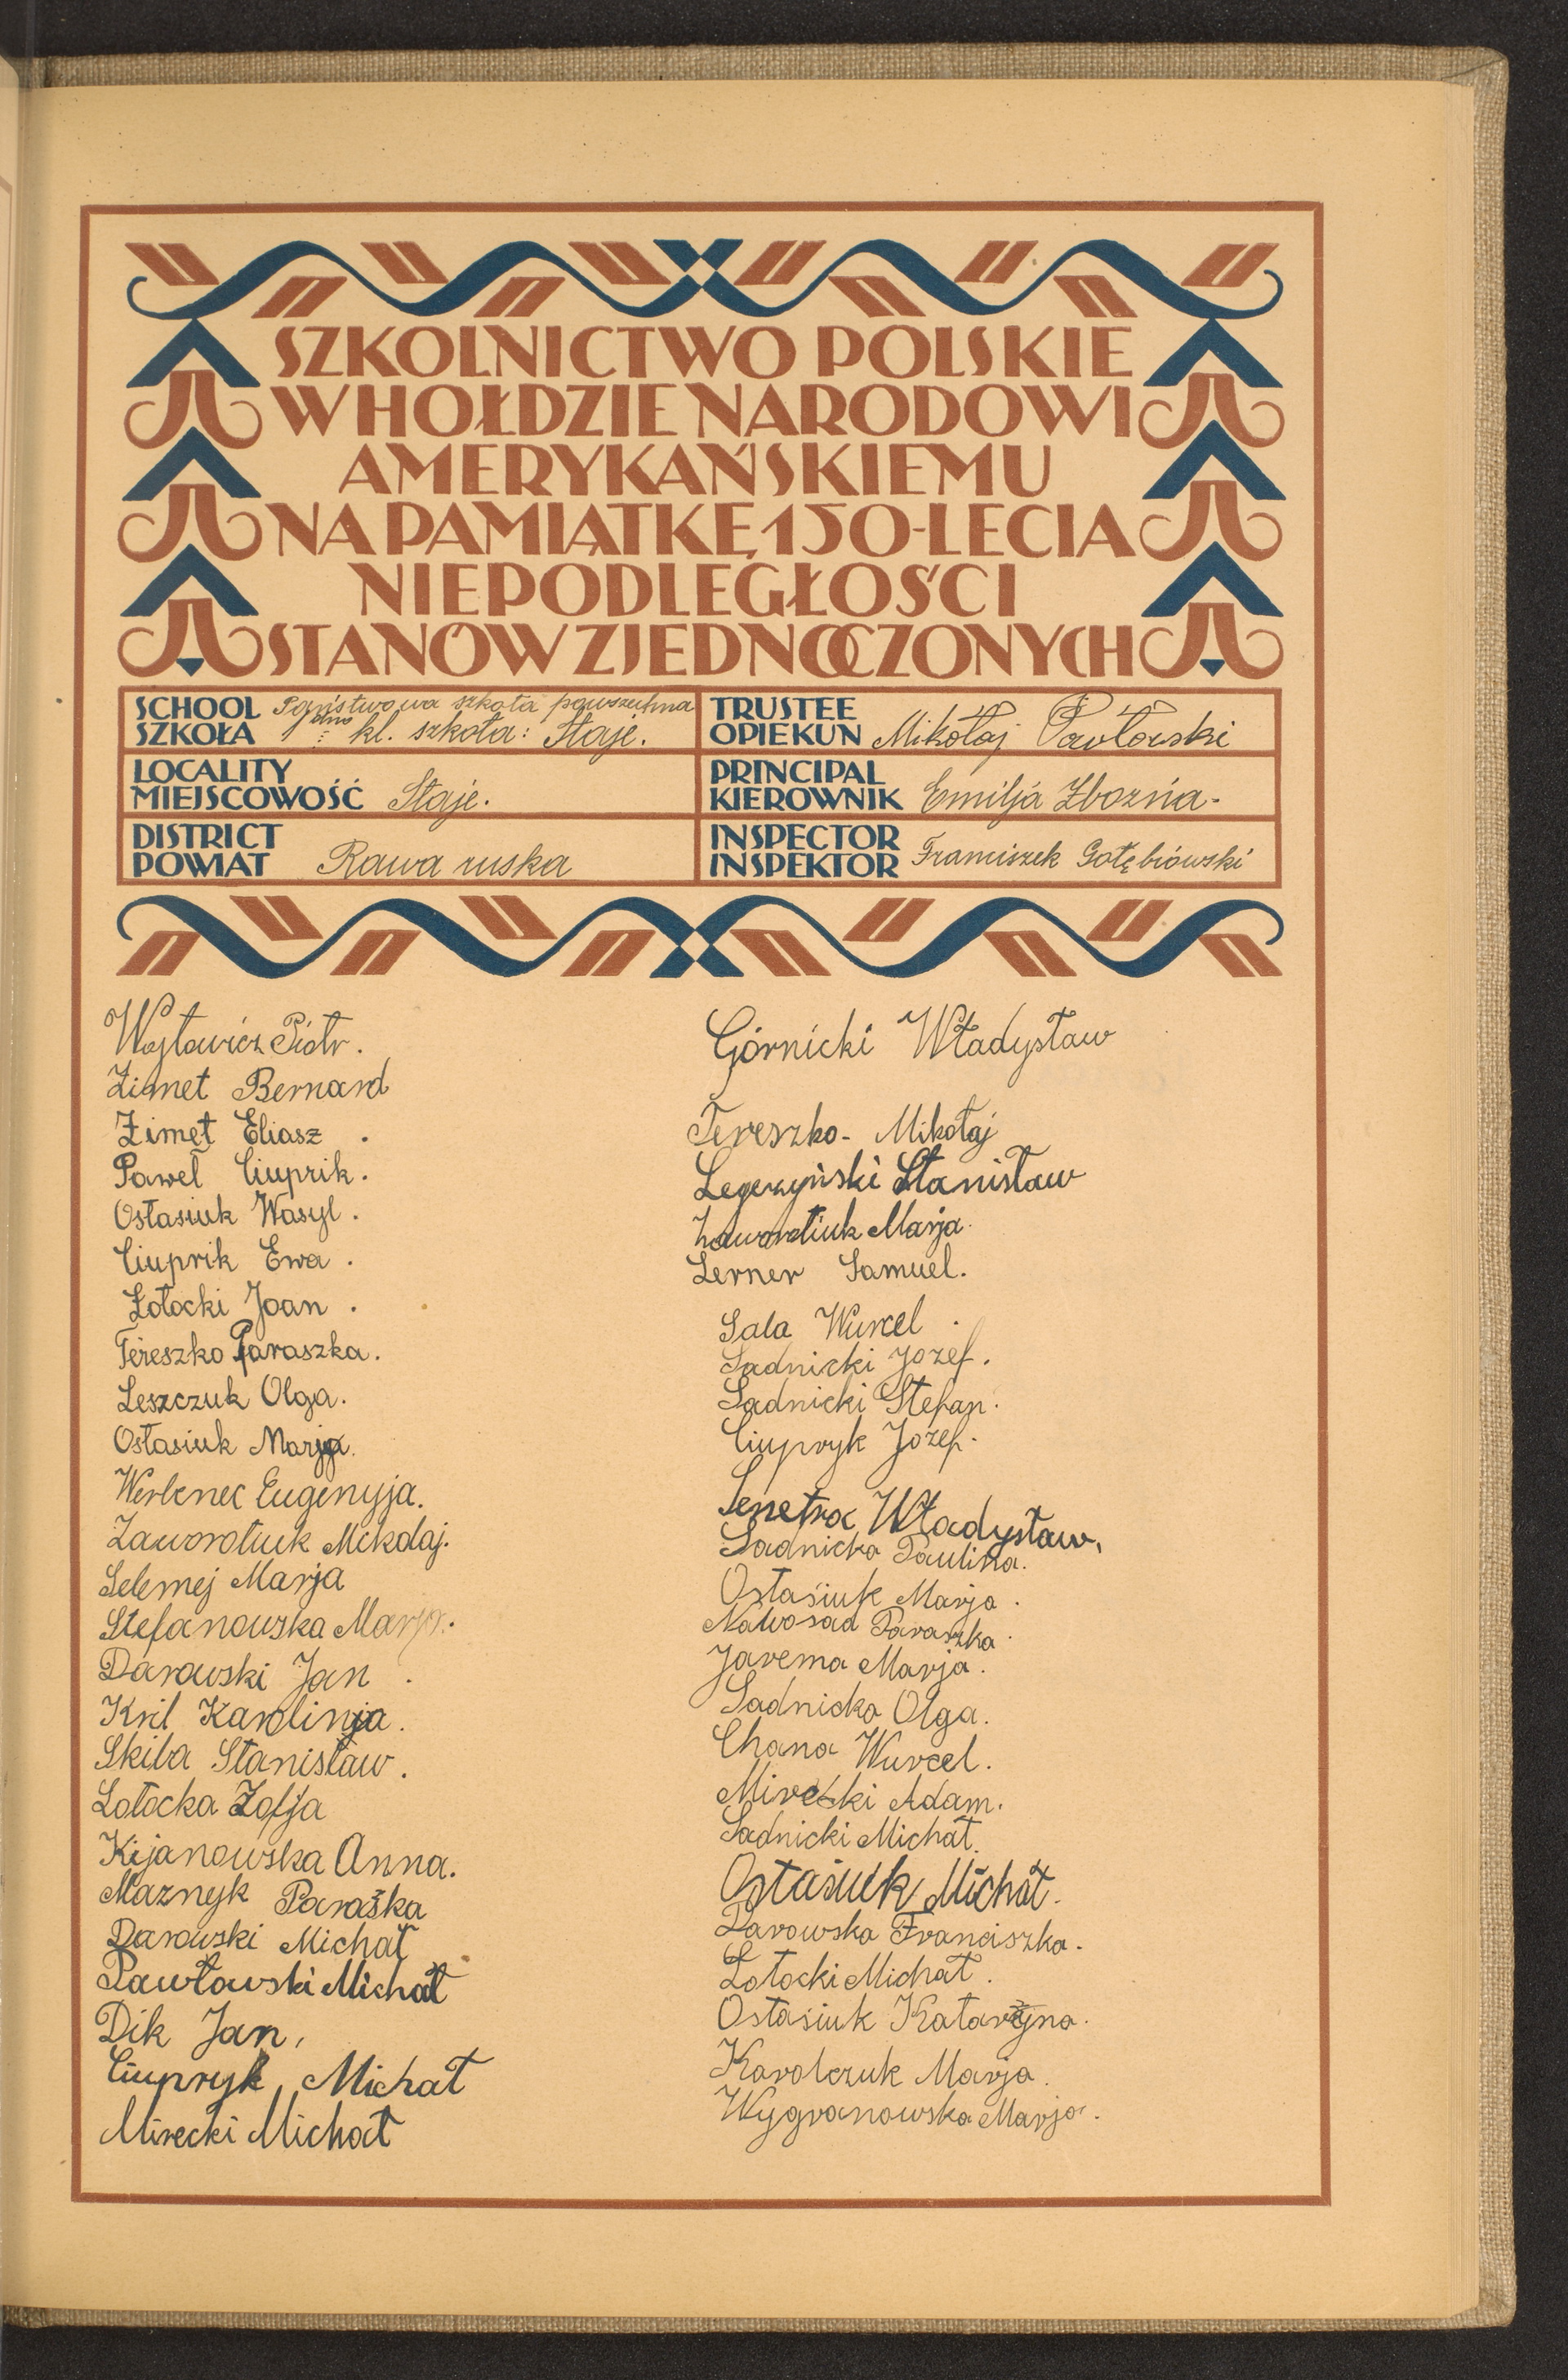 SZKOLNICTWO POLSKIE
W HOŁDZIE NARODOWI
AMERYKAŃSKIEMU
NA PAMIĄTKĘ 150-LECIA
NIEPODLEGŁOŚCI
STANÓW ZJEDNOCZONYCH
SCHOOL
SZKOŁA
Państwowa szkoła powszechna
1 dno kl. szkoła: Staje.
TRUSTEE
OPIEKUN Mikołaj Pawłowski
LOCALITY
MIEJSCOWOŚĆ Staje.
PRINCIPAL
KIEROWNIK Emilja Zbozńa-
DISTRICT
POWIAT Rawa ruska
INSPECTOR
INSPEKTOR Franciszek Gołębiowski
Wojtowicz Piotr.
Zimet Bernard
Zimet Eliasz.
Paweł Ciuprik.
Ostasiuk Wasyl.
Ciuprik Ewa.
Łotocki Joan.
Tereszko Paraszka.
Leszczuk Olga.
Ostasiuk Marja.
Werbenec Eugenyja.
Zaworotiuk Mikolaj.
Selemej Marja
Stefanowska Marja.
Darowski Jan.
Kril Karolinja.
Skiba Stanisław.
Łotocka Zofja
Kijanowska Anna.
Maznyk Paraśka
Darowski Michał
Pawłowski Michał
Dik Jan,
Ciupryk, Michał
Mirecki Michał
Górnicki Władysław
Tereszko- Mikołaj
Legezyński Stanisław
Zaworotiuk Marja.
Lerner Samuel.
Sala Wurcel.
Sadnicki Jozef.
Sadnicki Stefan.
Ciupryk Jozef.
Senetra Władysław,
Sadnicka Paulina.
Ostasiuk Marja.
Nawosad Paraszka.
Jarema Marja.
Sadnicka Olga.
Chana Wurcel.
Mirecki Adam.
Sadnicki Michał.
Ostasiuk Michał.
Darowska Franciszka.
Łotocki Michał.
Ostasiuk Katarzyna.
Karolczuk Marja.
Wygranowska Marja.